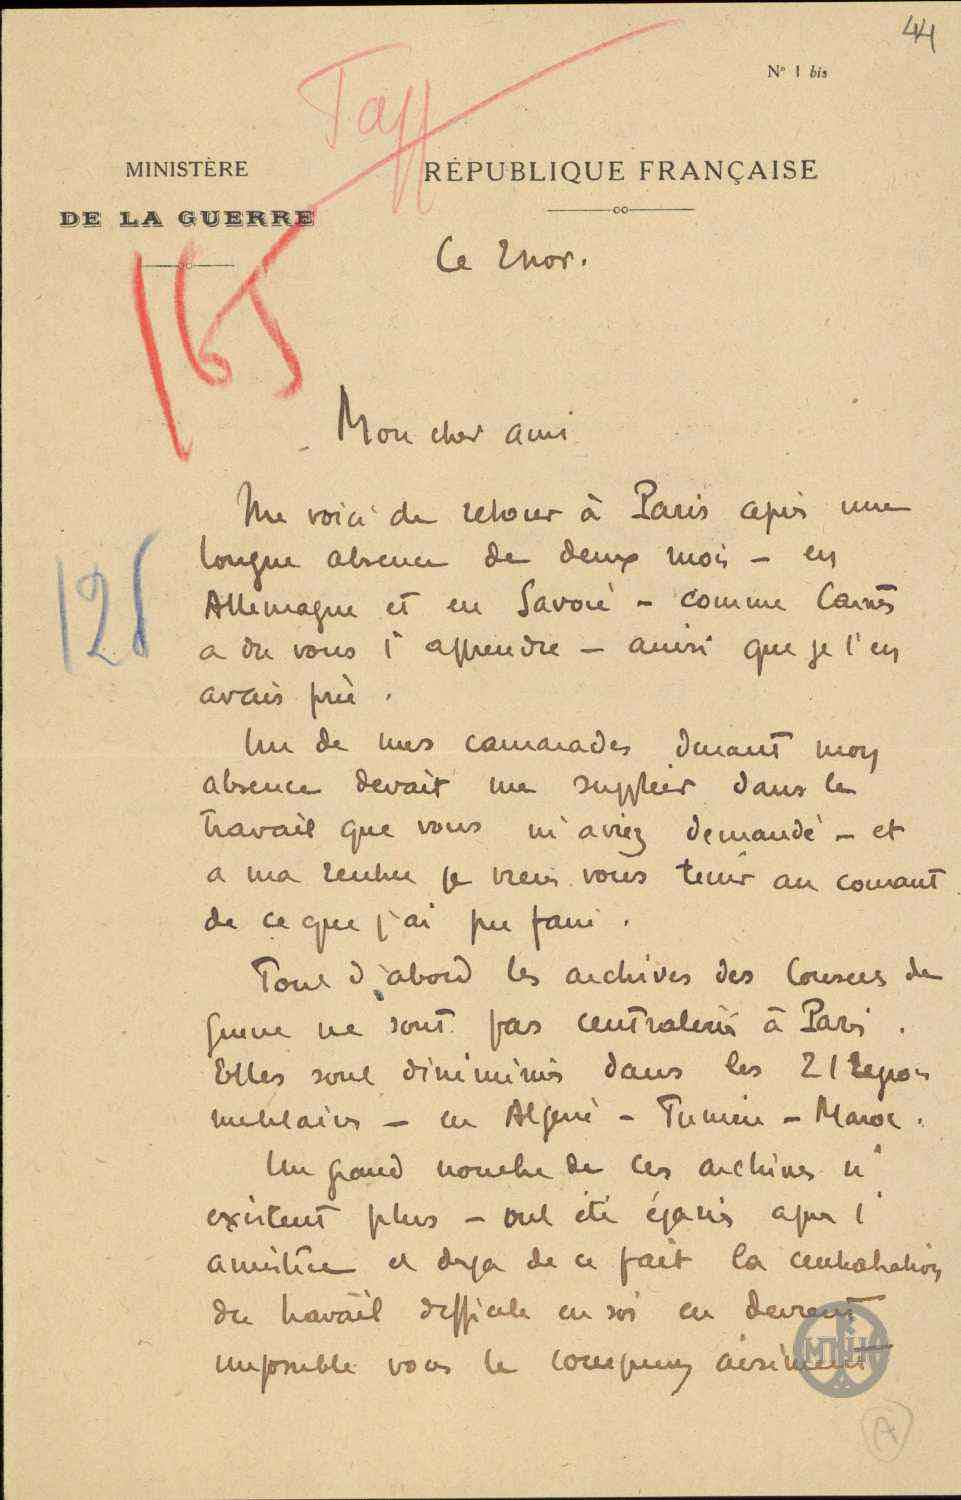 44
N° 1 bis
Taff
MINISTÈRE
DE LA GUERRE
RÉPUBLIQUE FRANÇAISE
165
Ce 2 nov.
Mon cher ami
Me voici de retour à Paris après une
longue absence de deux mois – en
Allemagne et en Savoie – comme
a du vous l'apprendre – ainsi que je l'en
avais prié.
128
Un de mes camarades durant mon
absence devait me suppléer dans le
travail que vous m'aviez demandé – et
a ma rentrée je viens vous tenir au courant
de ce que j'ai pu faire.
Tout d'abord les archives des Conseils de
guerre ne sont pas centralisés à Paris.
Elles sont disséminés dans les 21 régions
militaires – en Algérie – Tunisie – Maroc.
Un grand nombre de ces archives n'
existent plus – ont été égarés après l'
armistice et déja de ce fait la centralisation
du travail difficile en soi en devient
impossible vous le comprenez aisément
MIH
A